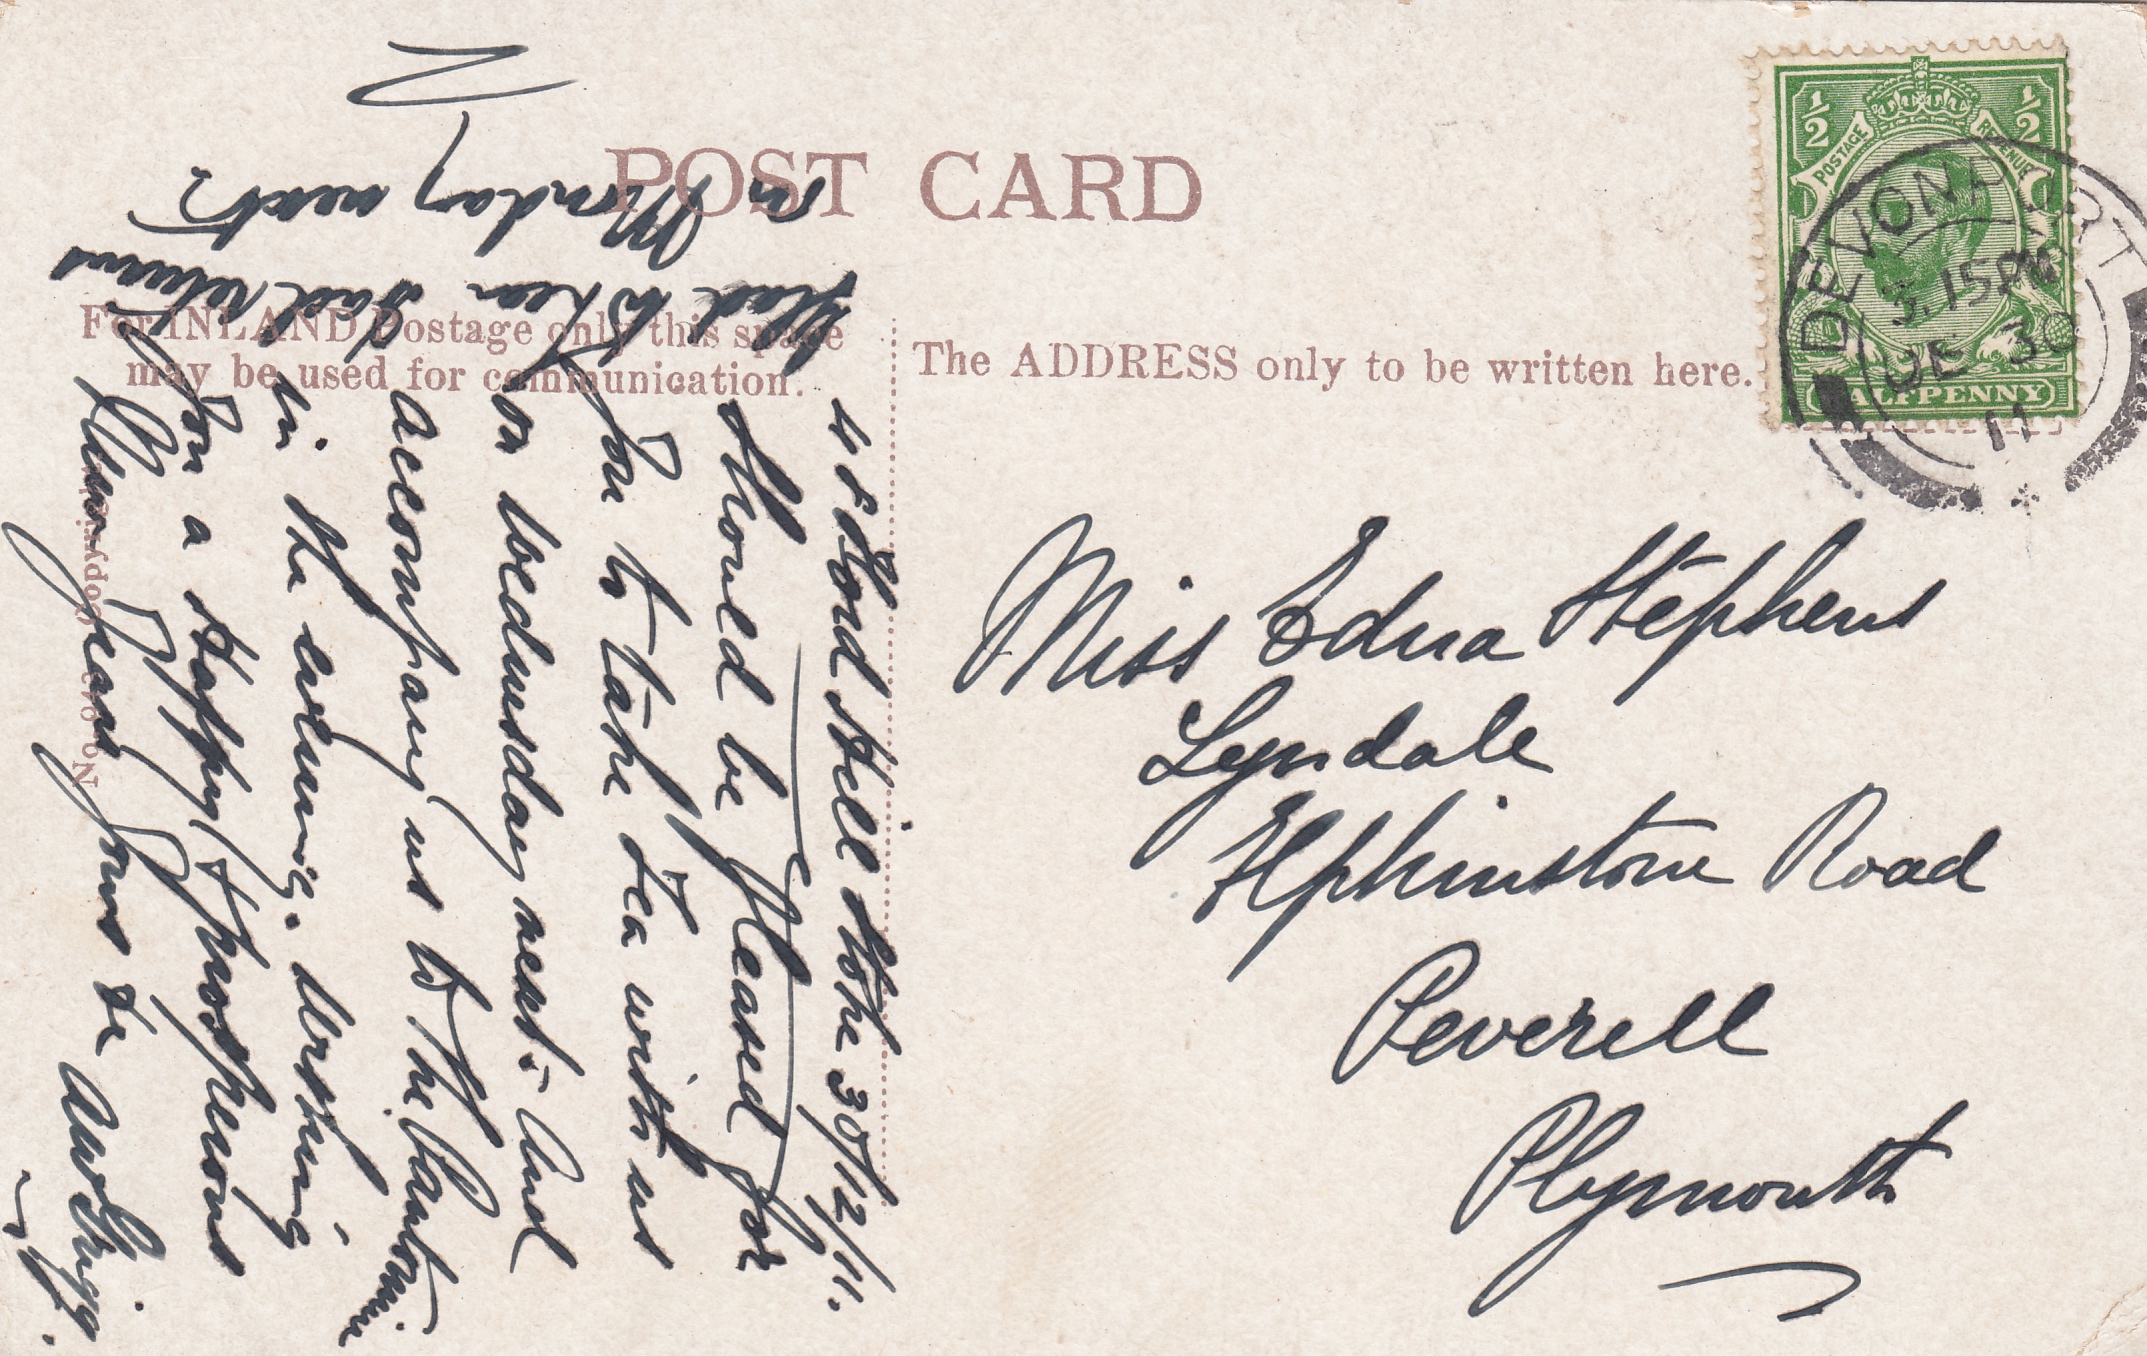 POST CARD
For INLAND Postage only this space
may be used for communication.
The ADDRESS only to be written here.
½ ½
POSTAGE REVENUE
HALFPENNY
DEVONPORT
3.15PM
DE 30
11
Miss Edna Stephens
Lyndale
Elphinstone Road
Peverell
Plymouth
Ford Hill Stoke 30/12/11.
Should be pleased for
you to take tea with us
on Wednesday next - and
accompany us to the Pantomime
in the evening. Wishing
you a Happy & Prosperous
New Year Yours to
Glad to hear Dad returns
on Monday next
No. Copyright